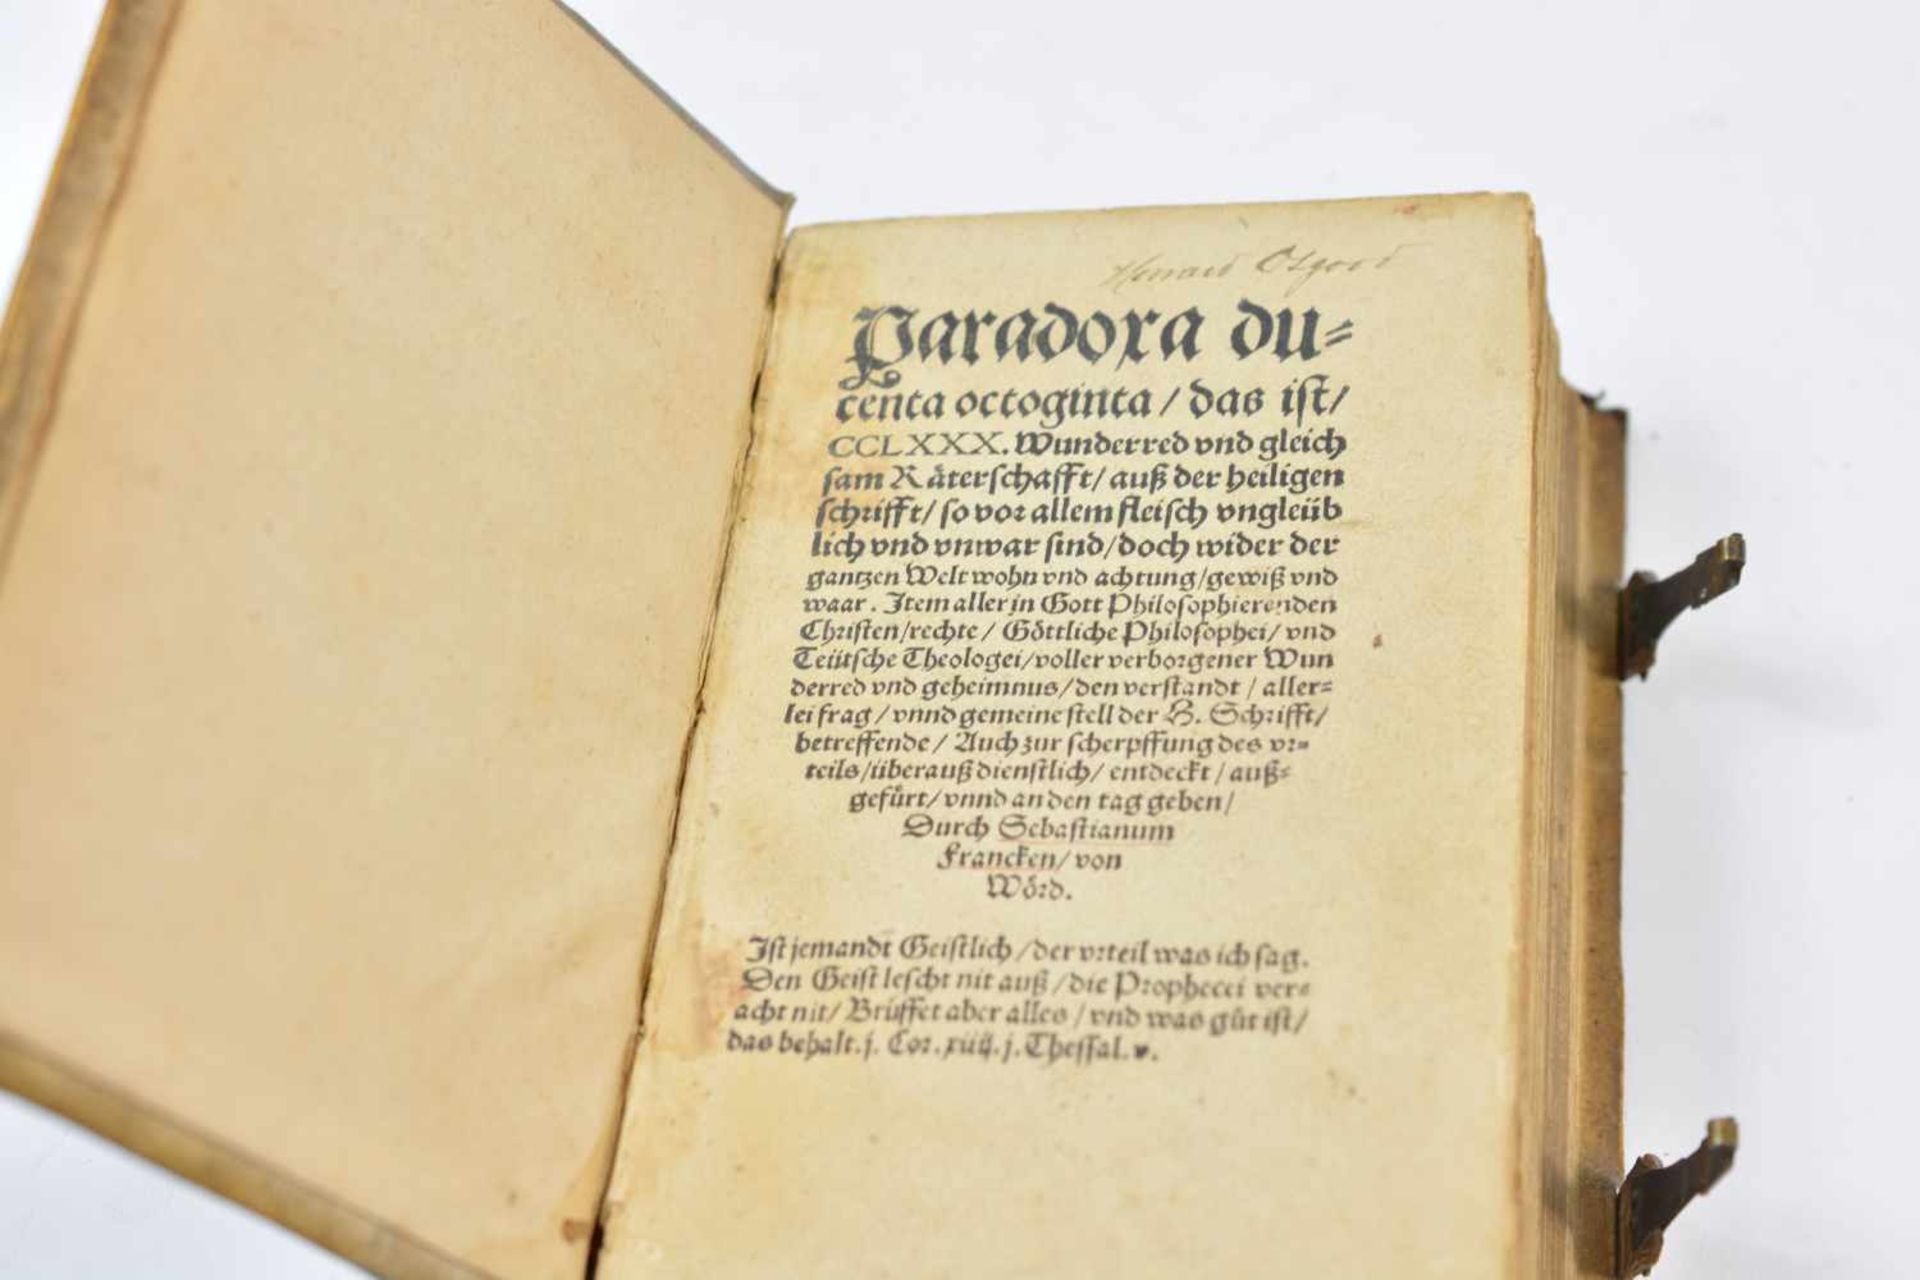 Howard Osgood
Paradoxa du⸗
centa octoginta / das ist /
CCLXXX. Wunderred vnd gleich
sam Räterschafft / auß der heiligen
schrifft / so vor allem fleisch vngleüb
lich vnd vnwar sind / doch wider der
gantzen Welt wohn vnd achtung / gewiß vnd
waar. Item aller in Gott Philosophierenden
Christen / rechte / Göttliche Philosophei / vnd
Teütsche Theologei / voller verborgener Wun
derred vnd geheimnus / den verstandt / aller⸗
lei frag / vnnd gemeine stell der H. Schrifft /
betreffende / Auch zur scherpffung des vr⸗
teils / überauß dienstlich / entdeckt / auß⸗
gefürt / vnnd an den tag geben /
Durch Sebastianum
Francken / von
Wörd.
Ist jemandt Geistlich / der vrteil was ich sag.
Den Geist lescht nit auß / die Prophecei ver⸗
acht nit / Brüffet aber alles / vnd was gůt ist /
das behalt. j. Cor. xiiij. j. Thessal. v.